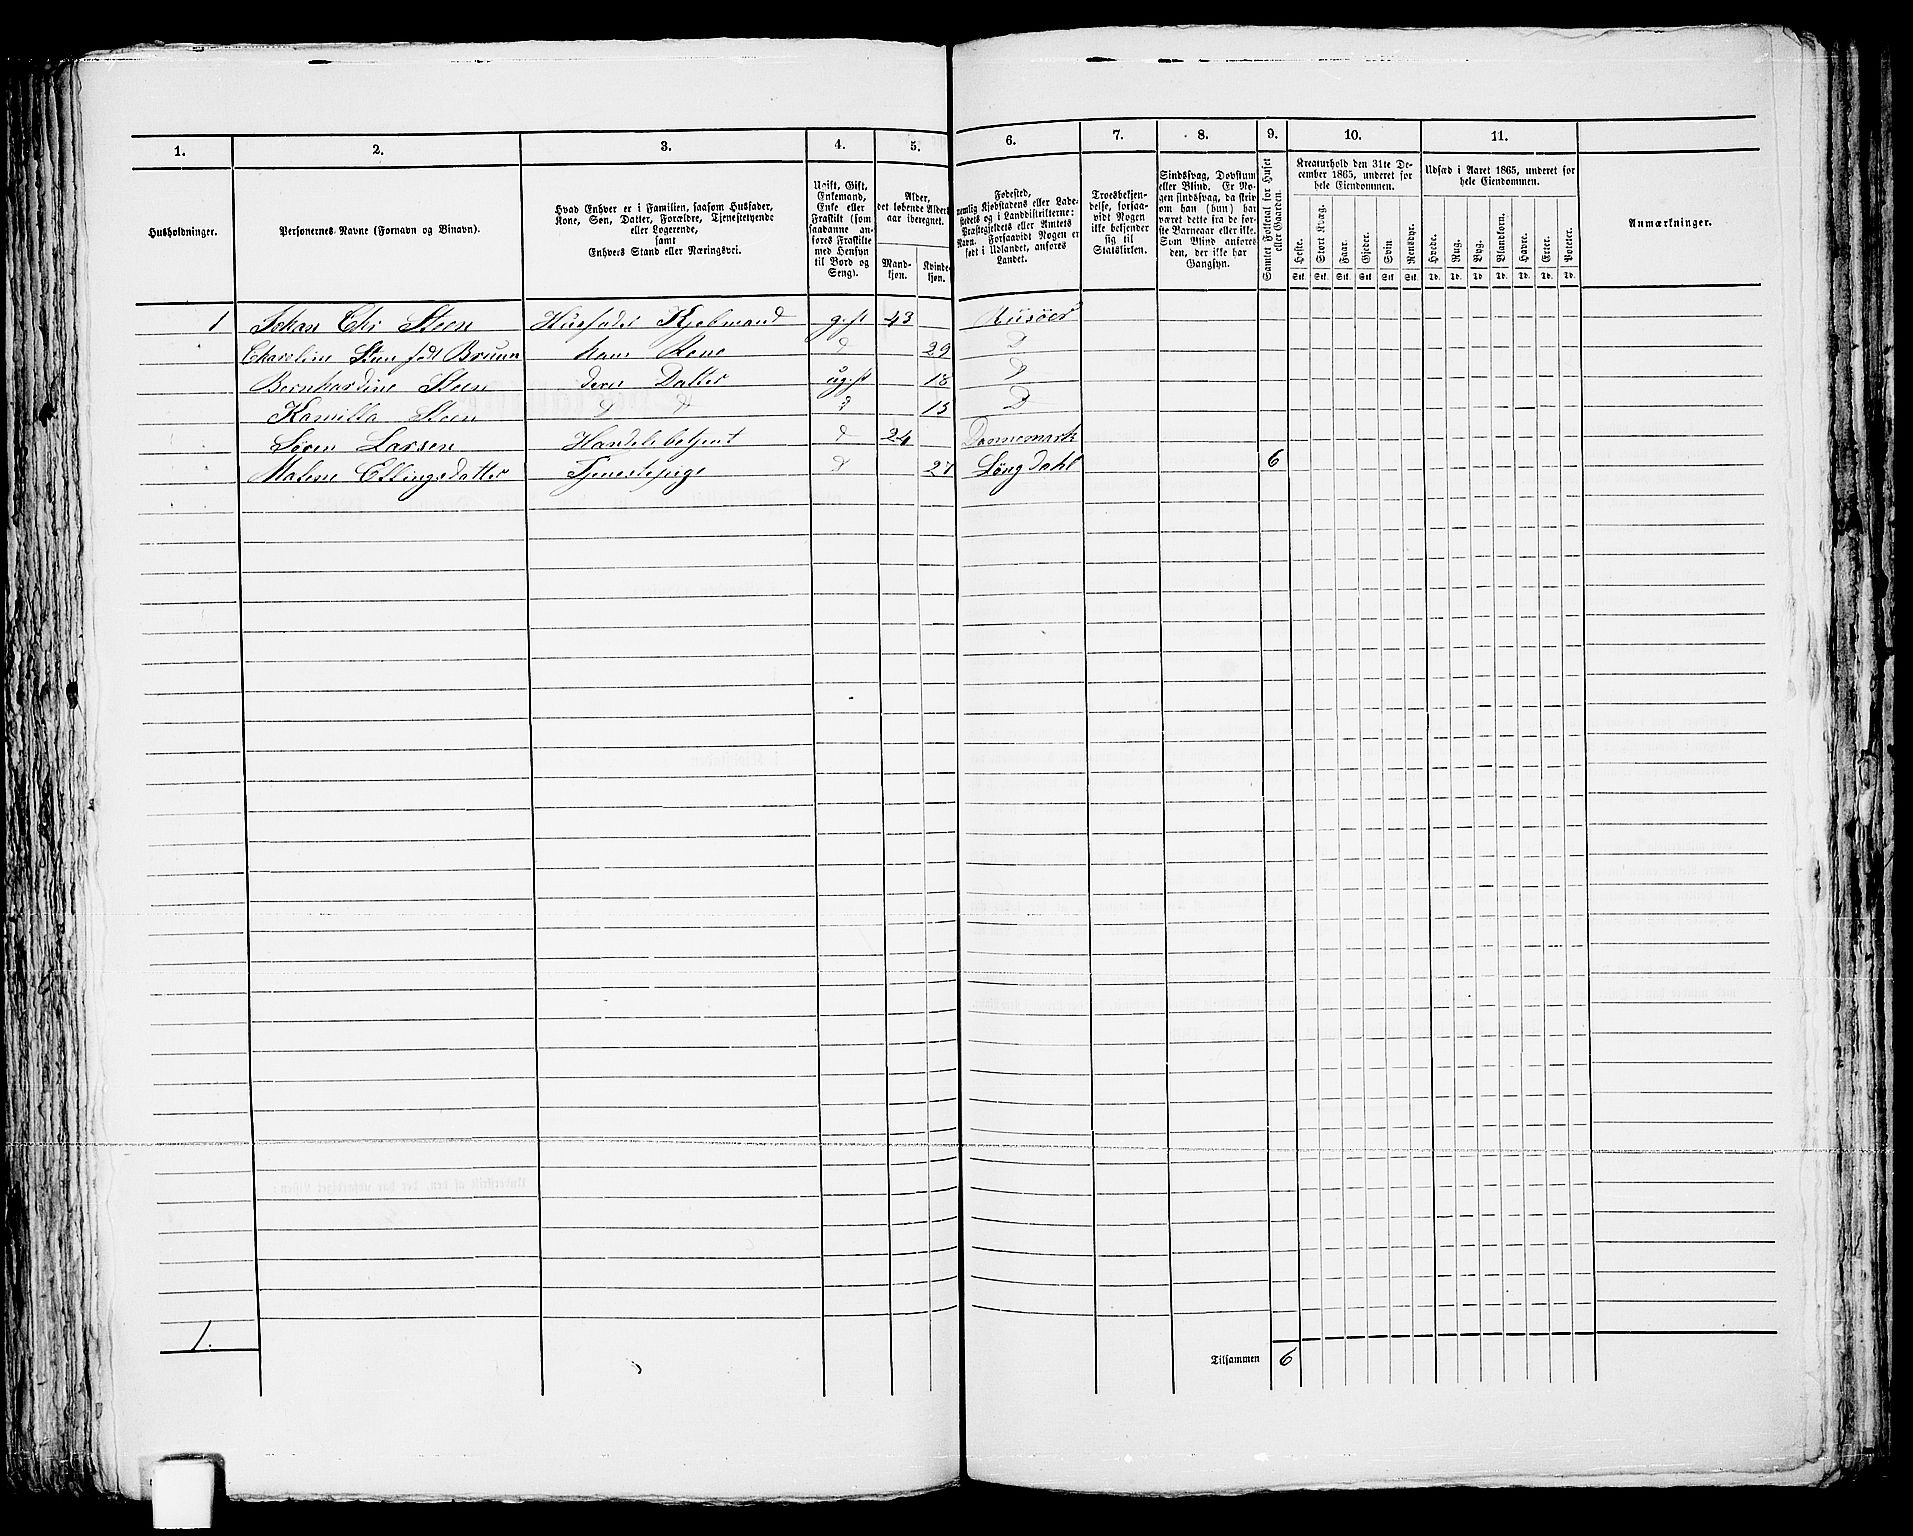 1. 2. 3. 4. 5. 6. 7. 8. 9. 10. 11.
Husholdninger.
Personernes Navne (Fornavn og Binavn).
Hvad Enhver er i Familien, saasom Husfader,
Kone, Søn, Datter, Forældre, Tjenestetyende
eller Logerende,
samt
Enhvers Stand eller Næringsvei.
Ugift, Gift,
Enkemand,
Enke eller
Fraskilt (som
saadanne an-
føres Fraskilte
med Hensyn
til Bord og
Seng).
Alder,
det løbende Alders-
aar iberegnet.
Mand-
kjøn.
Kvinde-
kjøn.
Fødested,
nemlig Kjøbstadens eller Lade-
stedets og i Landdistrikterne:
Præstegjeldets eller Amtets
Navn. Forsaavidt Nogen er
født i Udlandet, anføres
Landet.
Troesbekjen-
delse, forsaa-
vidt Nogen
ikke bekjender
sig til
Statskirken.
Sindssvag, Døvstum
eller Blind. Er No-
gen sindssvag, da skriv
om han (hun) har
været dette fra de før-
ste Barneaar eller ikke.
Som Blind anføres
den, der ikke har
Gangsyn.
Samlet Folketal for Huset
eller Gaarden.
Kreaturhold den 31te De-
cember 1865, underet for
hele Eiendommen.
Heste. Stort Kvæg. Faar. Gjeder. Svin. Rensdyr.
Stk. Stk. Stk. Stk. Stk. Stk.
Udsæd i Aaret 1865, underet for
hele Eiendommen.
Hvede. Rug. Byg. Blandkorn. Havre. Erter. Poteter.
Td. Td. Td. Td. Td. Td. Td.
Anmærkninger.
1 Johan Chr Steen Husfader Kjøbmand gift 43 Riisöer
Charoline Steen født Bruun hans Kone D 29 D
Bernhardine Steen deres Datter ugift 18 D
Kamilla Steen D D D 15 D
Søren Larsen Handelsbetjent D 24 Dannemark
Malene Ellingsdatter Tjenestepige D 27 Löngdahl 6
1.
Tilsammen 6